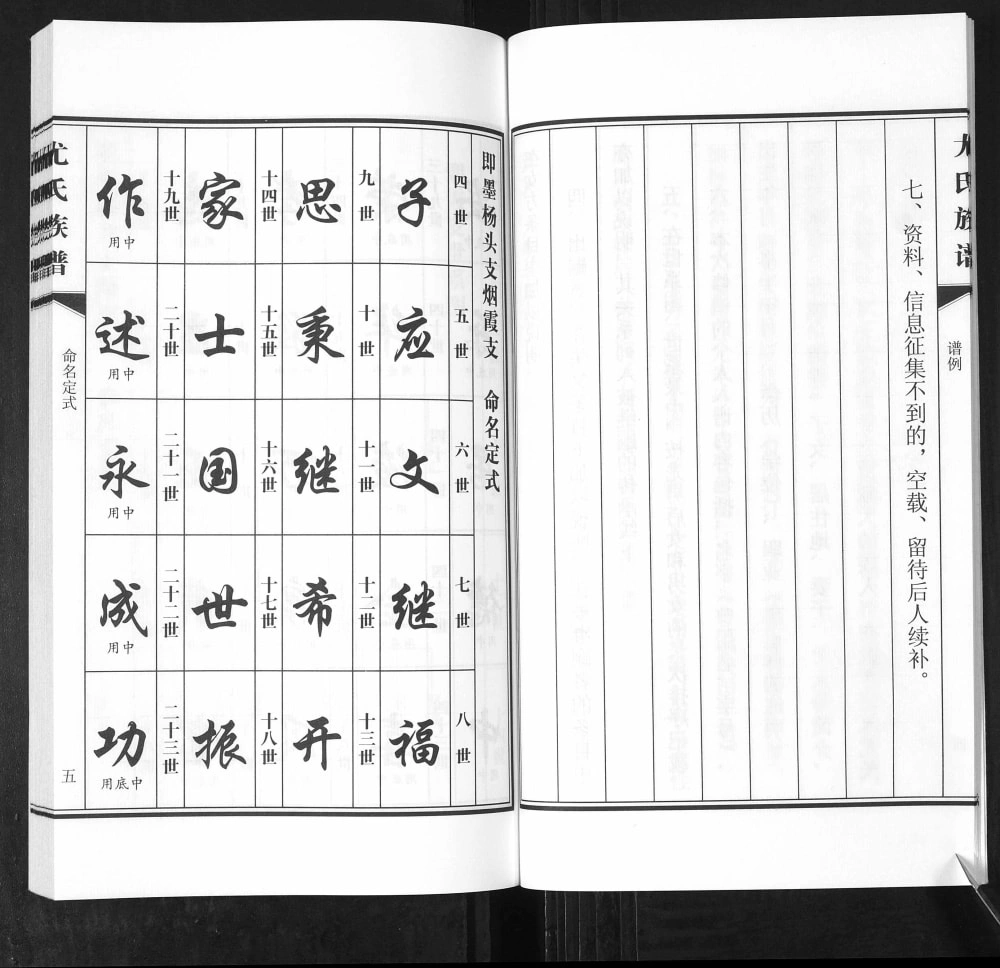 尤氏族谱
谱例
七、资料、信息征集不到的，空载、留待后人续补。
即墨杨头支烟霞支 命名定式
四世
子
五世
应
六世
文
七世
继
八世
福
九世
思
十世
秉
十一世
继
十二世
希
十三世
开
十四世
家
十五世
士
十六世
国
十七世
世
十八世
振
十九世
作
中用
二十世
述
中用
二十一世
永
中用
二十二世
成
中用
二十三世
功
中底用
尤氏族谱
命名定式
五